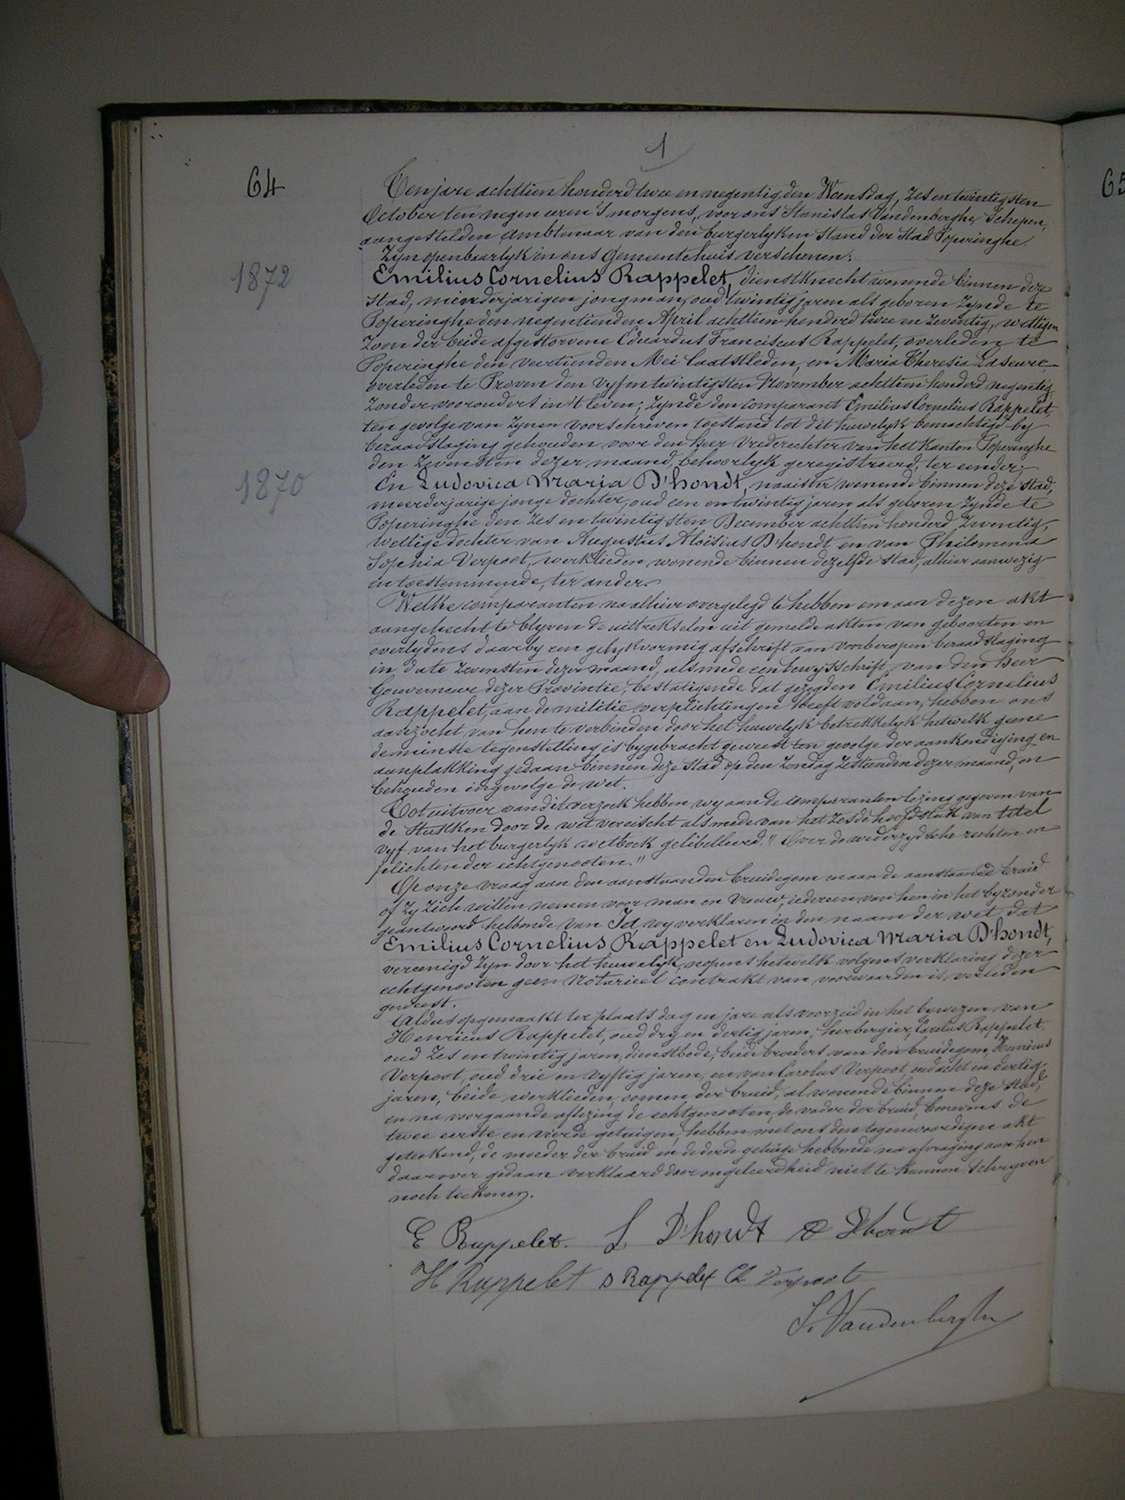 1
64
65
Ten jare achttien honderd twee en negentig, den Woensdag, zes en twintigsten
October ten negen uren 's morgens, voor ons Stanislas Vandenberghe, Schepen,
aangestelden Ambtenaar van den burgerlyken stand der Stad Poperinghe
Zyn openbaarlyk in ons Gemeentehuis verschenen:
1872
Emilius Cornelius Rappelet, dienstknecht wonende binnen deze
Stad, meerderjarigen jongman, oud twintig jaren als geboren zynde te
Poperinghe den negentienden April achttien honderd twee en zeventig, wettigen
Zoon der beide afgestorvene Eduardus Franciscus Rappelet, overleden te
Poperinghe den veertienden Mei laatstleden, en Maria Theresia
overleden te Proven den vyfentwintigsten November achttien honderd negentig,
Zonder voorouders in 't leven; zynde den comparant Emilius Cornelius Rappelet
ten gevolge van zynen voorschreven toestand tot dit huwelyk bemachtigd by
beraadslaging gehouden voor den heer Vrederechter van het Kanton Poperinghe
den zevensten dezer maand, behoorlyk geregistreerd, ter eender;
1870
En Ludovica Maria D'hondt, naaister, wonende binnen deze stad,
meerderjarige jonge dochter, oud een en twintig jaren als geboren zynde te
Poperinghe den zes en twintigsten December achttien honderd zeventig,
wettige dochter van Augustus Aloïsius D'hondt en van Philomena
Sophia Verpoot, werklieden, wonende binnen dezelfde stad, alhier aanwezig
en toestemmende, ter andere.
Welke comparanten na alhier overgelegd te hebben om aan dezen akt
aangehecht te blyven de uittrekselen uit gemelde akten van geboorten en
overlydens daarby een gelykvormig afschrift van voorberopen beraadslaging
in date zevensten dezer maand, alsmede een bewysschrift van den heer
Gouverneur dezer Provintie, bestatigende dat gezegden Emilius Cornelius
Rappelet, aan de militie verplichtingen heeft voldaan, hebben ons
aanzocht van hen te verbinden door het huwelyk betrekkelyk hetwelk geene
de minste tegenstelling is bygebracht geweest ten gevolge der aankondiging en
aanplakking gedaan binnen deze stad op den Zondag zestienden dezer maand, en
behouden ingevolge de wet.
Tot uitvoer van dit verzoek hebben wy aan de comparanten lezing gegeven van
de stukken door de wet vereischt alsmede van het zesde hoofdstuk van titel
vyf van het burgerlyk wetboek gelibelleerd " Over de wederzydsche rechten en
plichten der echtgenooten."
Op onze vraag aan den aanstaanden bruidegom en aan de aanstaande bruid
of zy zich willen nemen voor man en vrouw, iedereen van hen in het byzonder
geantwoord hebbende van Ja, wy verklaren in den naam der wet dat
Emilius Cornelius Rappelet en Ludovica Maria D'hondt,
vereenigd zyn door het huwelyk, nopens hetwelk volgens verklaring dezer
echtgenooten geen Notarieel contrakt van voorwaarden is verleden
geweest.
Aldus opgemaakt ter plaats dag en jare als voorzeid in het bywezen van
Henricus Rappelet, oud dry en dertig jaren, herbergier, Carolus Rappelet
oud zes en twintig jaren, dienstbode, beide broeders van den bruidegom, Henricus
Verpoot, oud drie en vyftig jaren, en van Carolus Verpoot, oud acht en dertig
jaren, beide werklieden, oomen der bruid, al wonende binnen deze stad,
en na voorgaande aflezing de echtgenooten, de vader der bruid, benevens de
twee eerste en vierde getuigen, hebben met ons den tegenwoordigen akt
geteekend, de moeder der bruid en de derde getuige hebbende na afvraging aan hen
daarover gedaan verklaard door ongeleerdheid niet te kunnen schryven
noch teekenen.
E Rappelet. L D'hondt A Dhondt
H Rappelet Rappelet Ch Verpoot
S. Vandenberghe